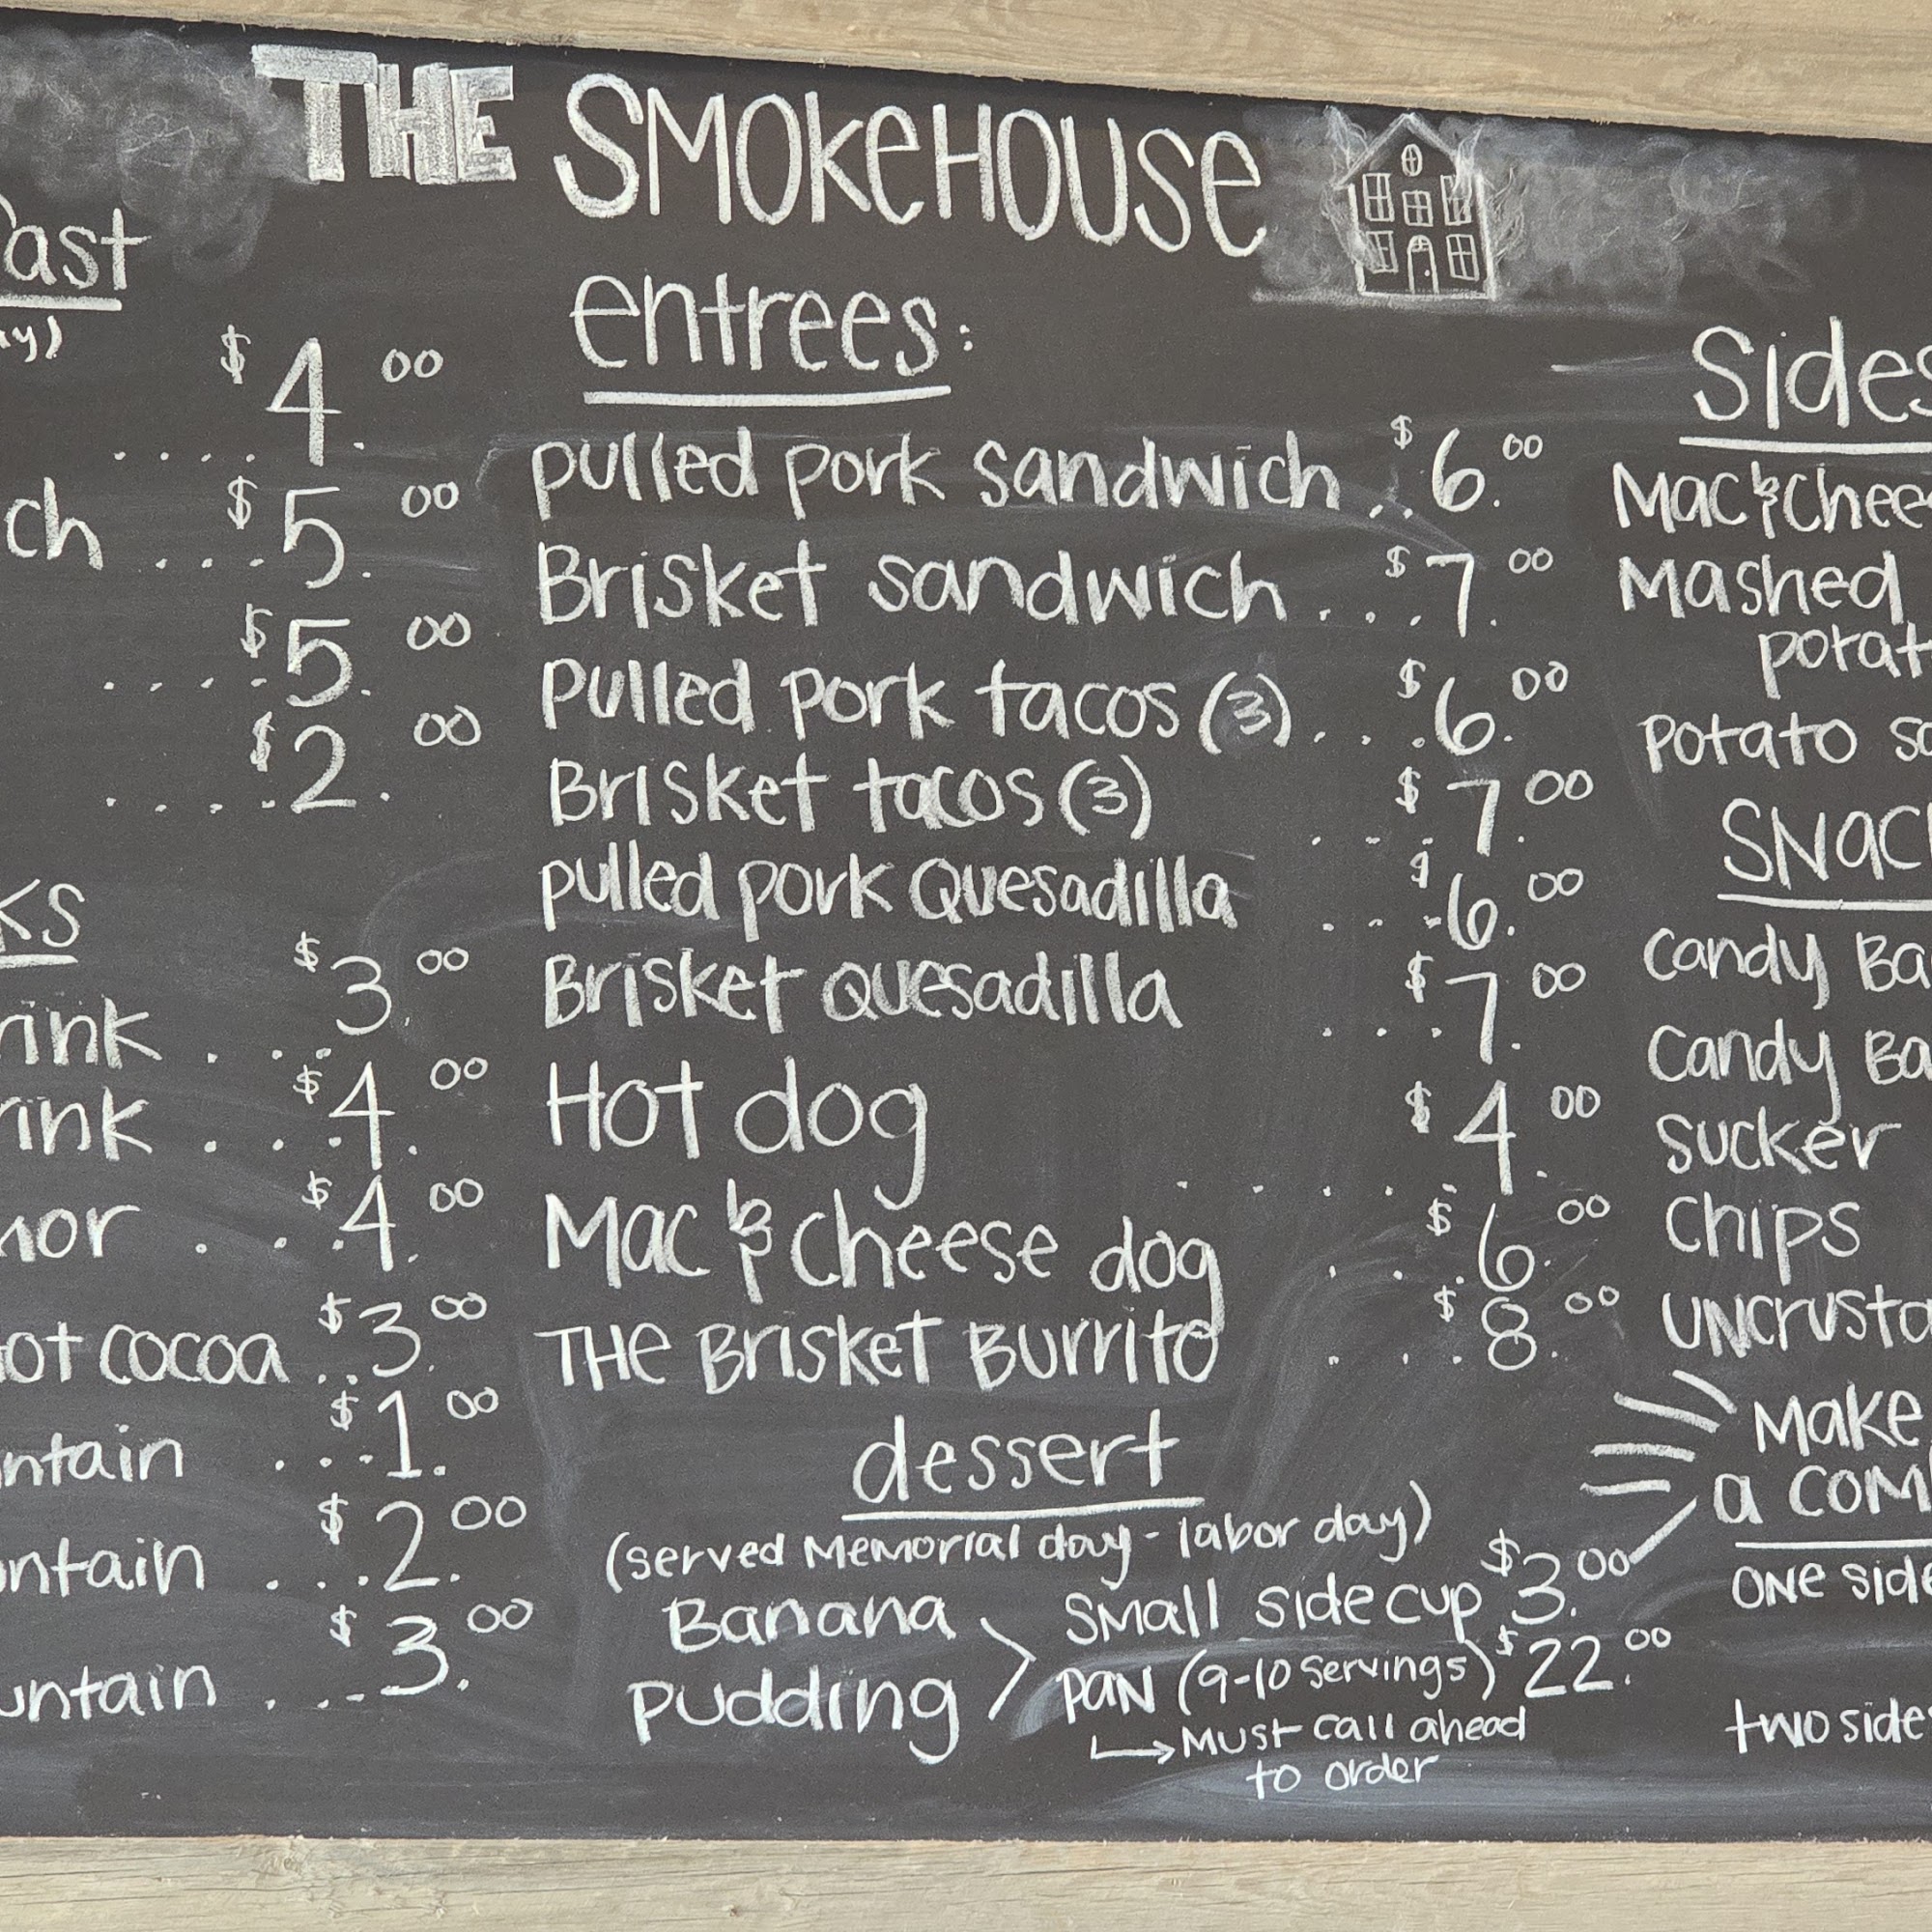 THE SMOKEHOUSE
ay)
$4.00
ch .... $5.00
..... $5.00
..... $2.00
KS
$3.00
rink ..... $4.00
rink ..... $4.00
nor ....
ot cocoa .. $3.00
ntain .... $1.00
ntain .... $2.00
untain .... $3.00
entrees:
pulled pork sandwich .. $6.00
Brisket sandwich .... $7.00
Pulled pork tacos (3) ... $6.00
Brisket tacos (3) .... $7.00
pulled pork Quesadilla ... $6.00
Brisket Quesadilla .... $7.00
Hot dog ..... $4.00
Mac & Cheese dog ... $6.00
THE Brisket Burrito .... $8.00
dessert
(served Memorial day - labor day)
Banana Pudding > Small side cup $3.00
PAN (9-10 Servings) $22.00
→ Must call ahead
to order
Sides
Mac & Chee
Mashed
potat
potato sa
SNAC
Candy Ba
Candy Ba
Sucker
Chips
UNCrusta
Make
a COM
ONE side
two sides